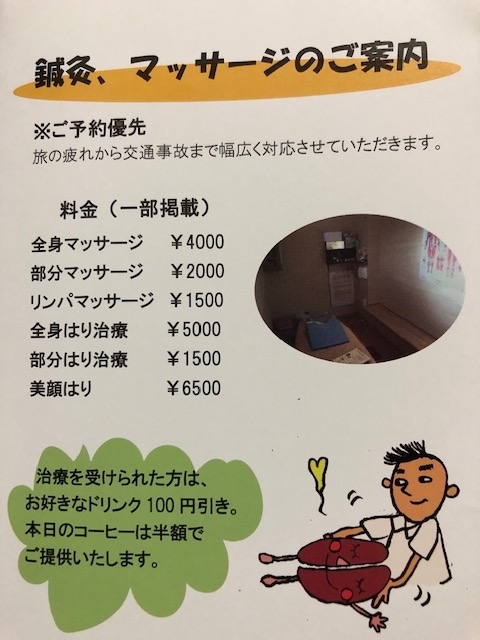 鍼灸、マッサージのご案内
※ご予約優先
旅の疲れから交通事故まで幅広く対応させていただきます。
料金（一部掲載）
全身マッサージ ￥4000
部分マッサージ ￥2000
リンパマッサージ ￥1500
全身はり治療 ￥5000
部分はり治療 ￥1500
美顔はり ￥6500
治療を受けられた方は、
お好きなドリンク100円引き。
本日のコーヒーは半額で
ご提供いたします。